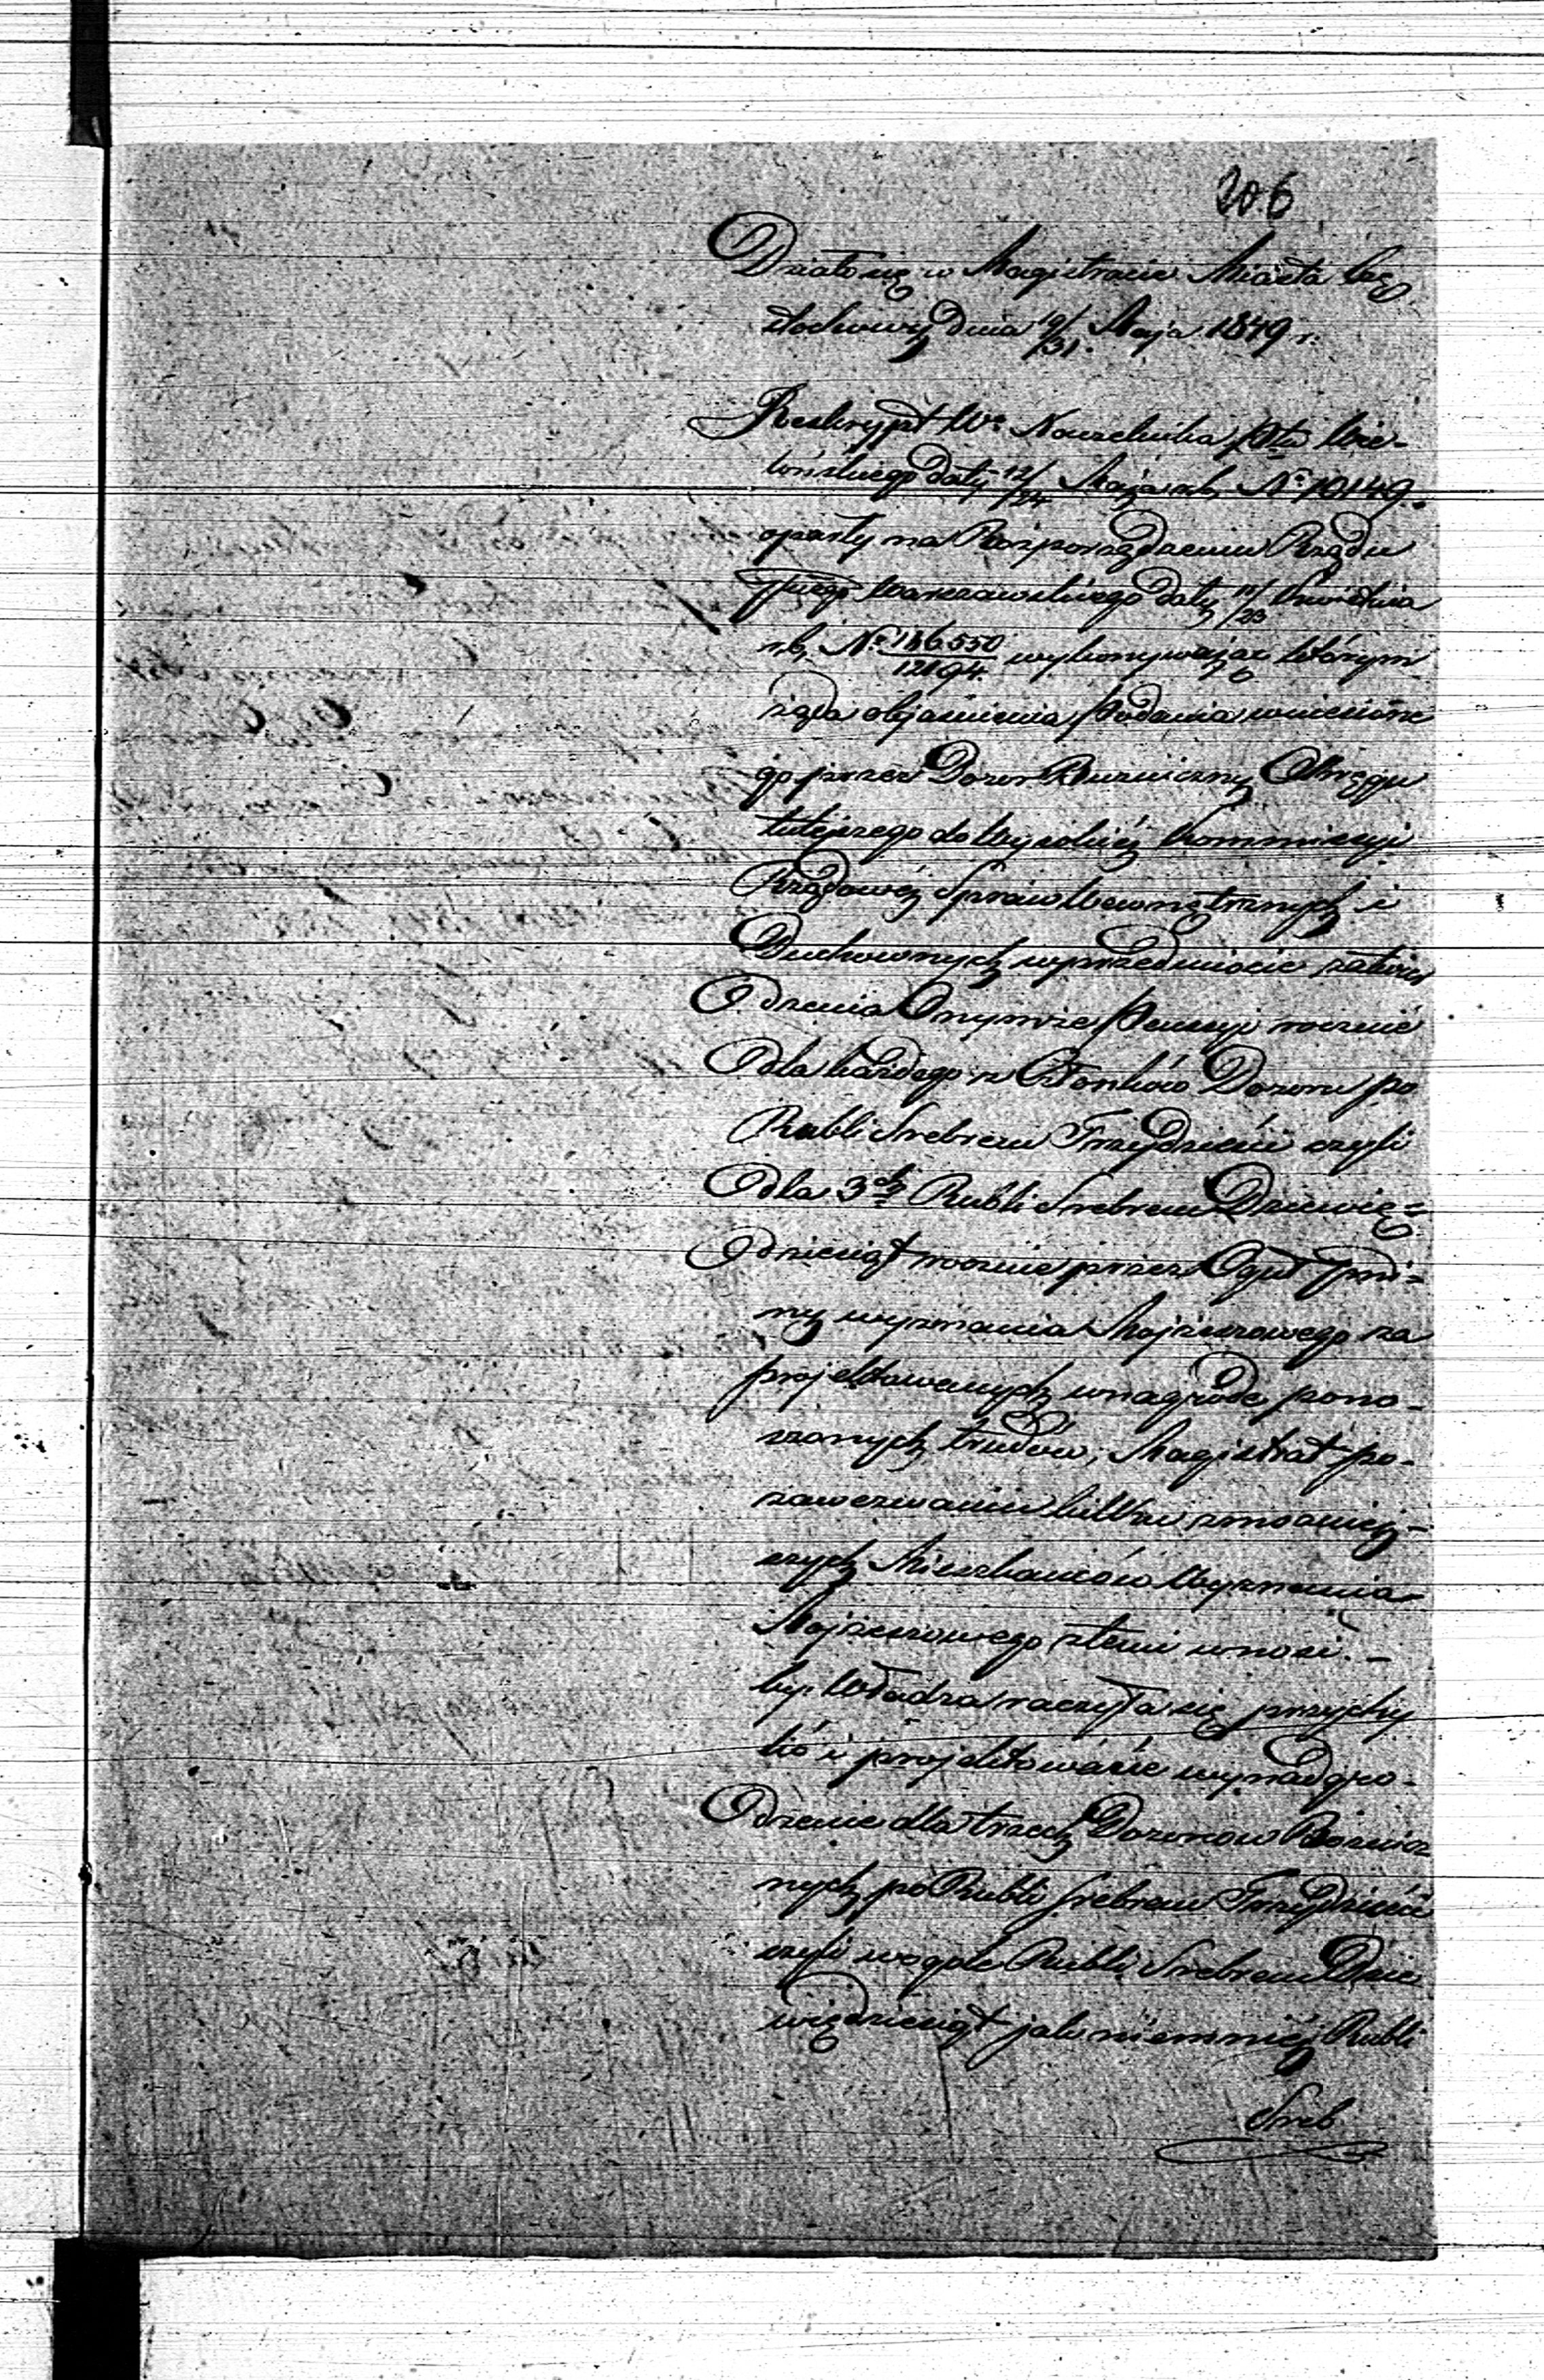 206
Działo się w Magistracie Miasta Czę
stochowy dnia 19/31. Maja 1849 r.
Reskrypt We Naczelnika Ptu Wie-
luńskiego daty 12/24 Maja rb. No 10149.
oparty na Rozporządzeniu Rządu
Gubgo Warszawskiego daty 11/23 Kwietnia
rb. No 186550/12194. wykonywając którym
żąda objaśnienia podania wniesione
go przez Dozor Bużniczny Okręgu
tutejszego do Wysokiéj Kommissyi
Rządowéj Spraw Wewnętrznych i
Duchownych w przedmiocie zatwier
dzenia Onymże Pensyi rocznie
dla każdego z Członków Dozoru po
Rubli Srebrem Trzydzieści czyli
dla 3ch Rubli Srebrem Dziewię=
dziesiąt rocznie przez Ogół Gmi-
ny wyznania Mojżeszowego za
projektowanych w nagrodę pono-
szonych trudów; Magistrat po-
zawezwaniu kilku zmożniej-
szych Mieszkańców Wyznania
Mojżeszowego z temi wnosi. –
by Władza raczyła się przychy
lić i projektowane wynadgro-
dzenie dla trzech Dozorow Bożnicz
nych po Rubli Srebrem Trzydzieści
czyli wogole Rubli Srebrem Dzie
więdziesiąt jako niemniéj Rubli
Sreb